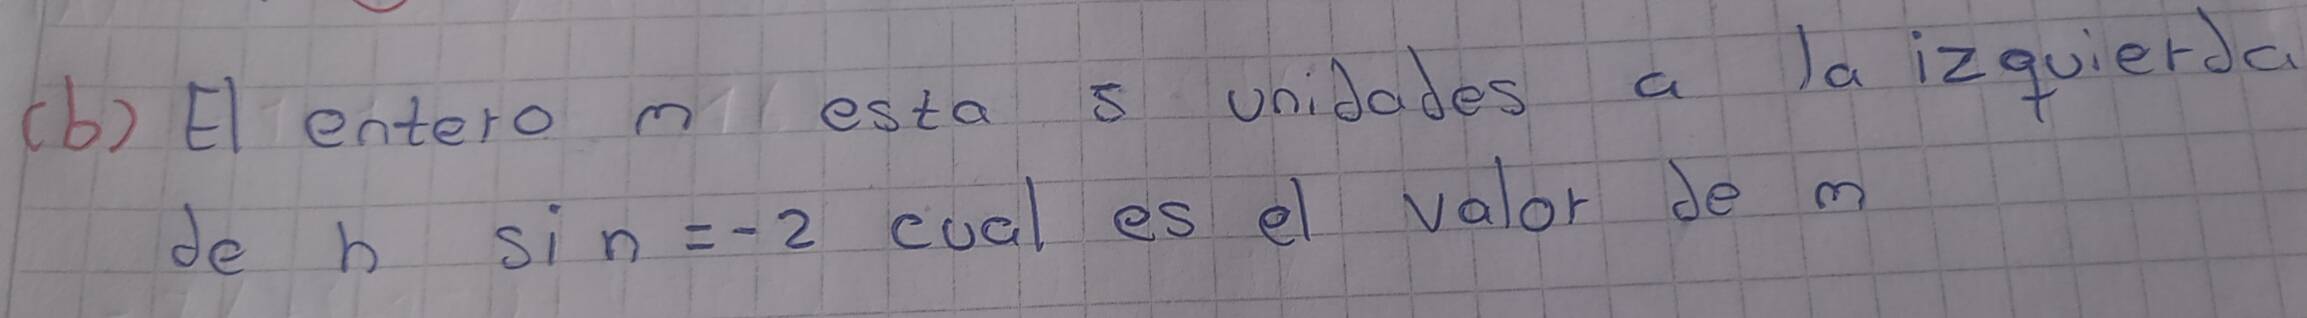 (b) El entero m esta 5 unidades a la izquierda
de n si n = -2 cual es el valor de m